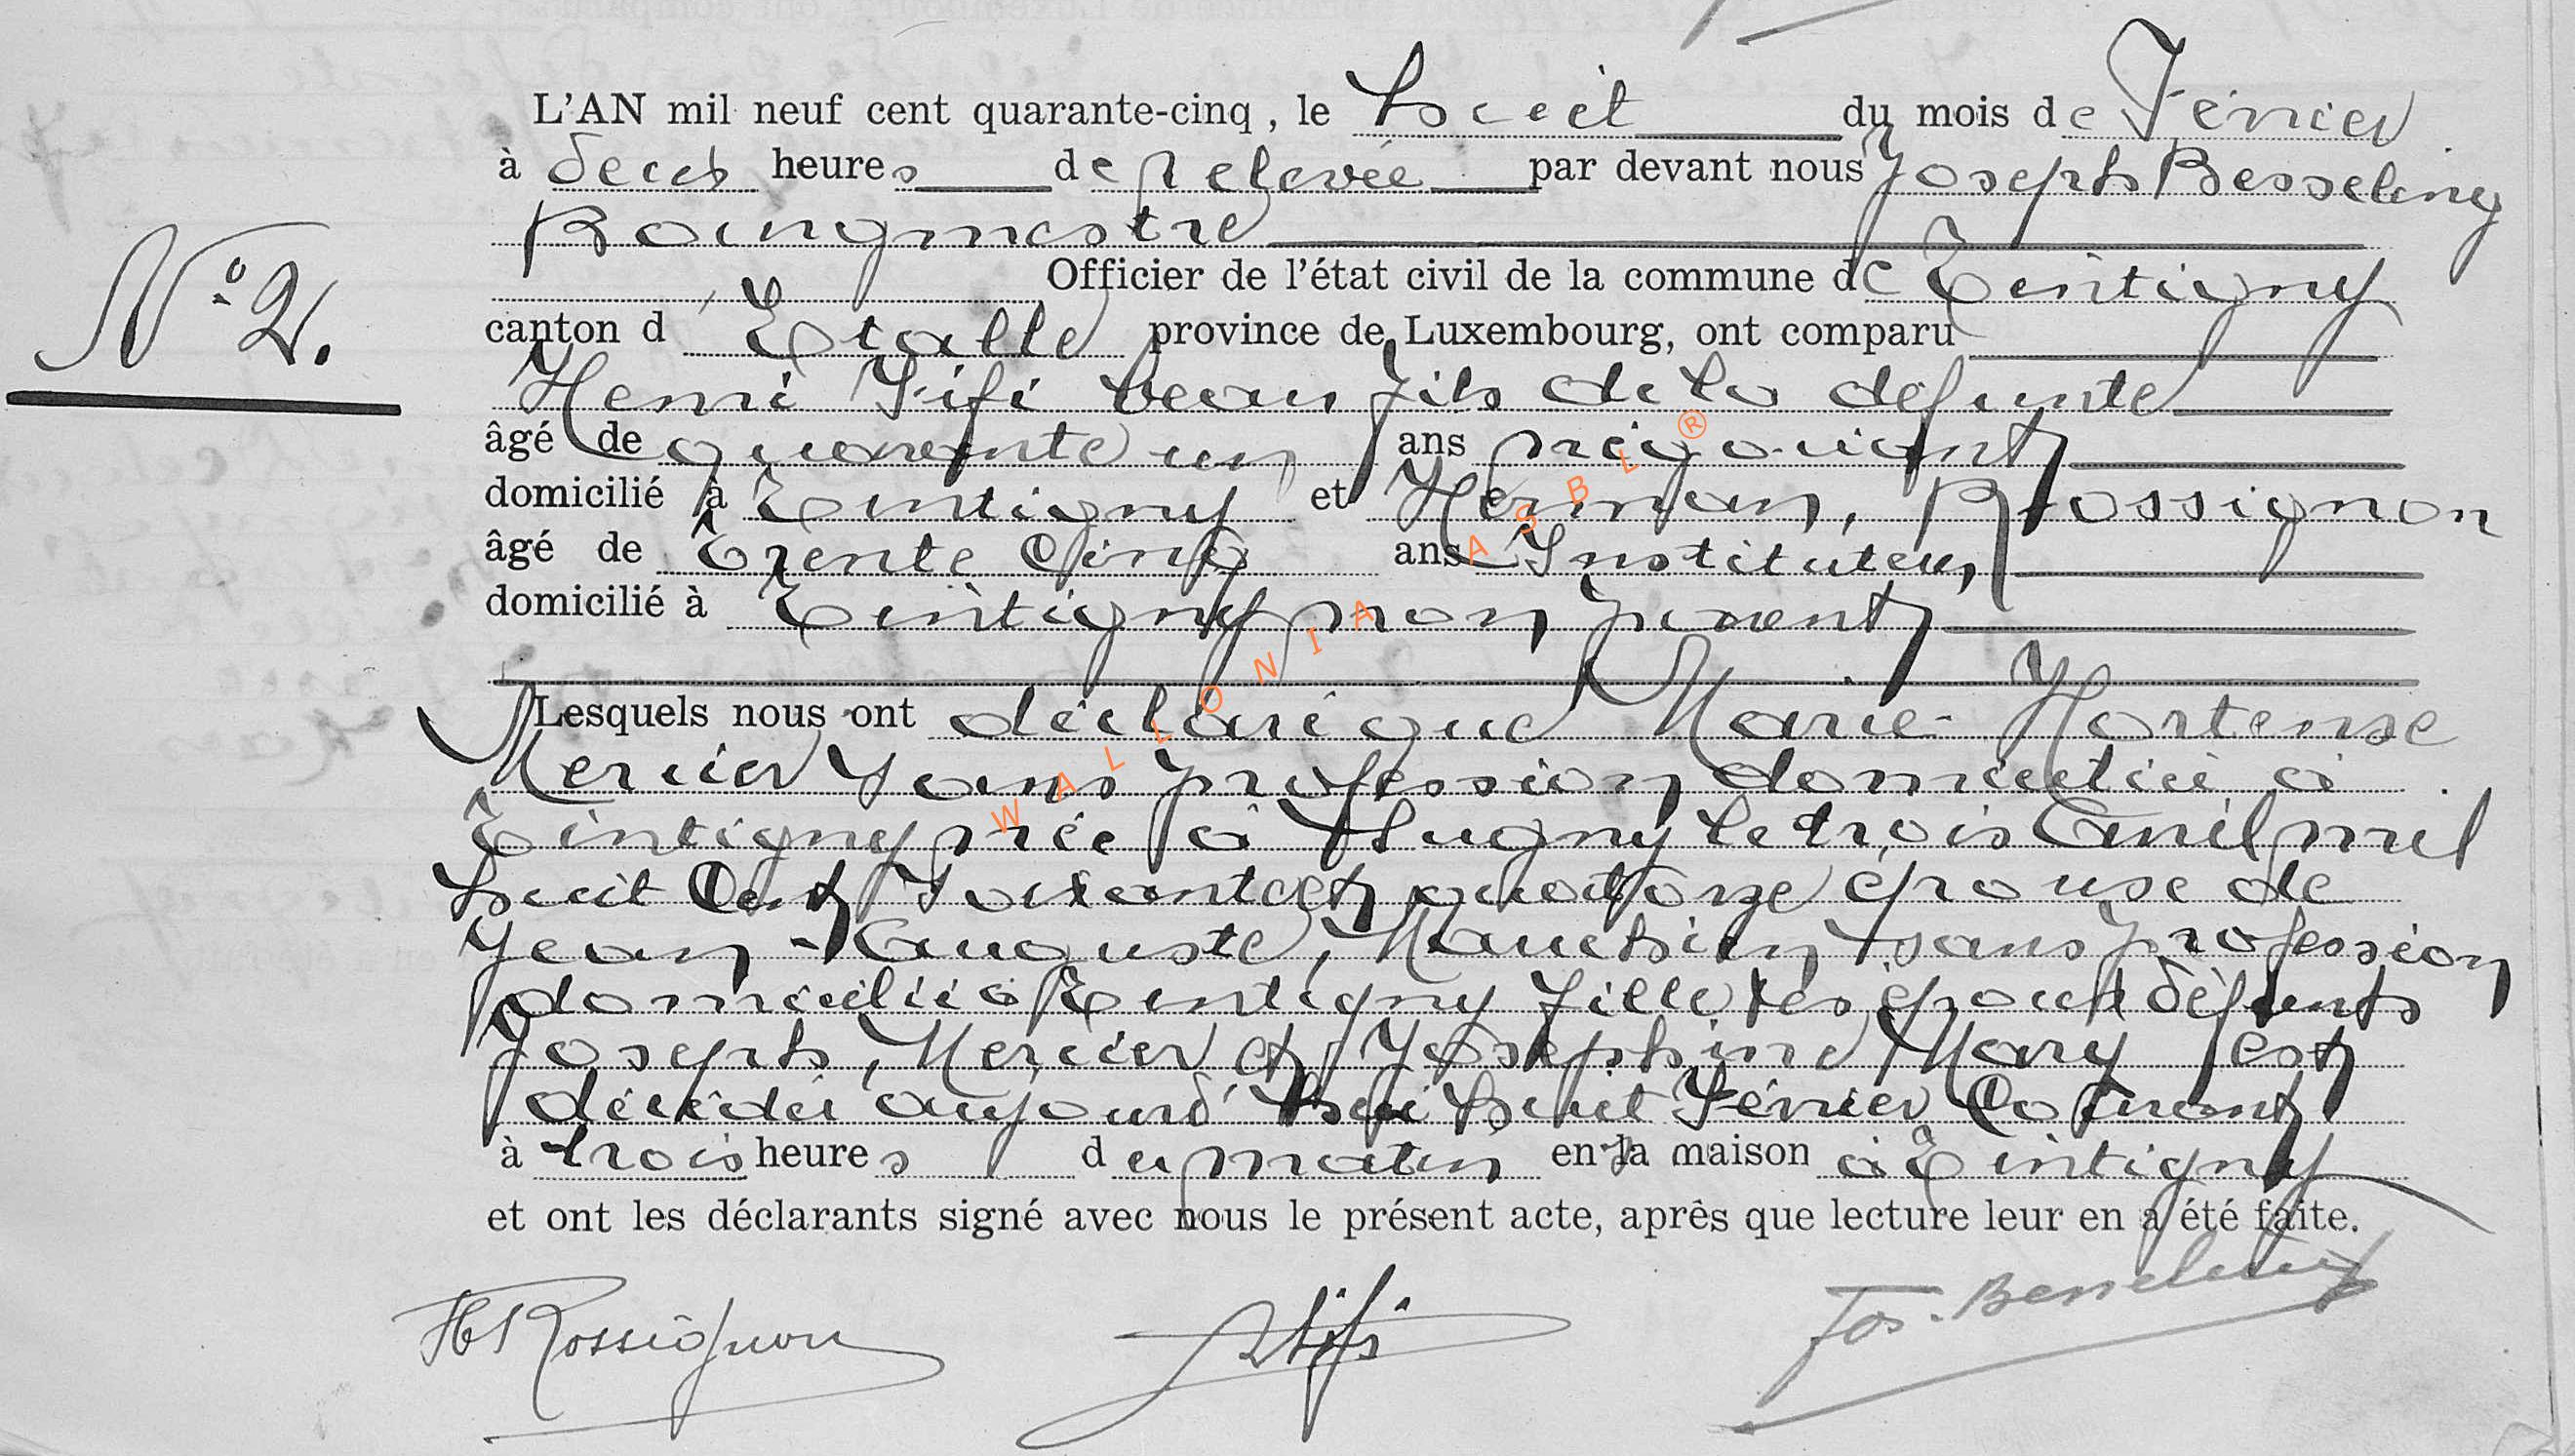 L'AN mil neuf cent quarante-cinq, le huit du mois de Février
à deux heures de relevée par devant nous Joseph Besseling
Bourgmestre
Officier de l'état civil de la commune de Tintigny
N° 2.
canton d'Etalle province de Luxembourg, ont comparu
Henri Fifi beau fils de la defunte
âgé de quarante un ans négociant
domicilié à Tintigny et Herman, Rossignon
âgé de trente cinq ans Instituteur
domicilié à Tintigny non parent
Lesquels nous ont déclaré que Marie-Hortense
Mercier sans profession domiciliée à
Tintigny née à le trois Avril mil
huit Cent Soixante et quatorze épouse de
Jean-Auguste, sans profession
domicilié à Tintigny fille des époux défunts
Joseph, Mercier et Joséphine Mary est
décédée aujourd'hui huit Février Courant
à trois heures du matin en la maison à Tintigny
et ont les déclarants signé avec nous le présent acte, après que lecture leur en a été faite.
H Rossignon Fifi Jos. Besseling
WALLONIA ASBL ®